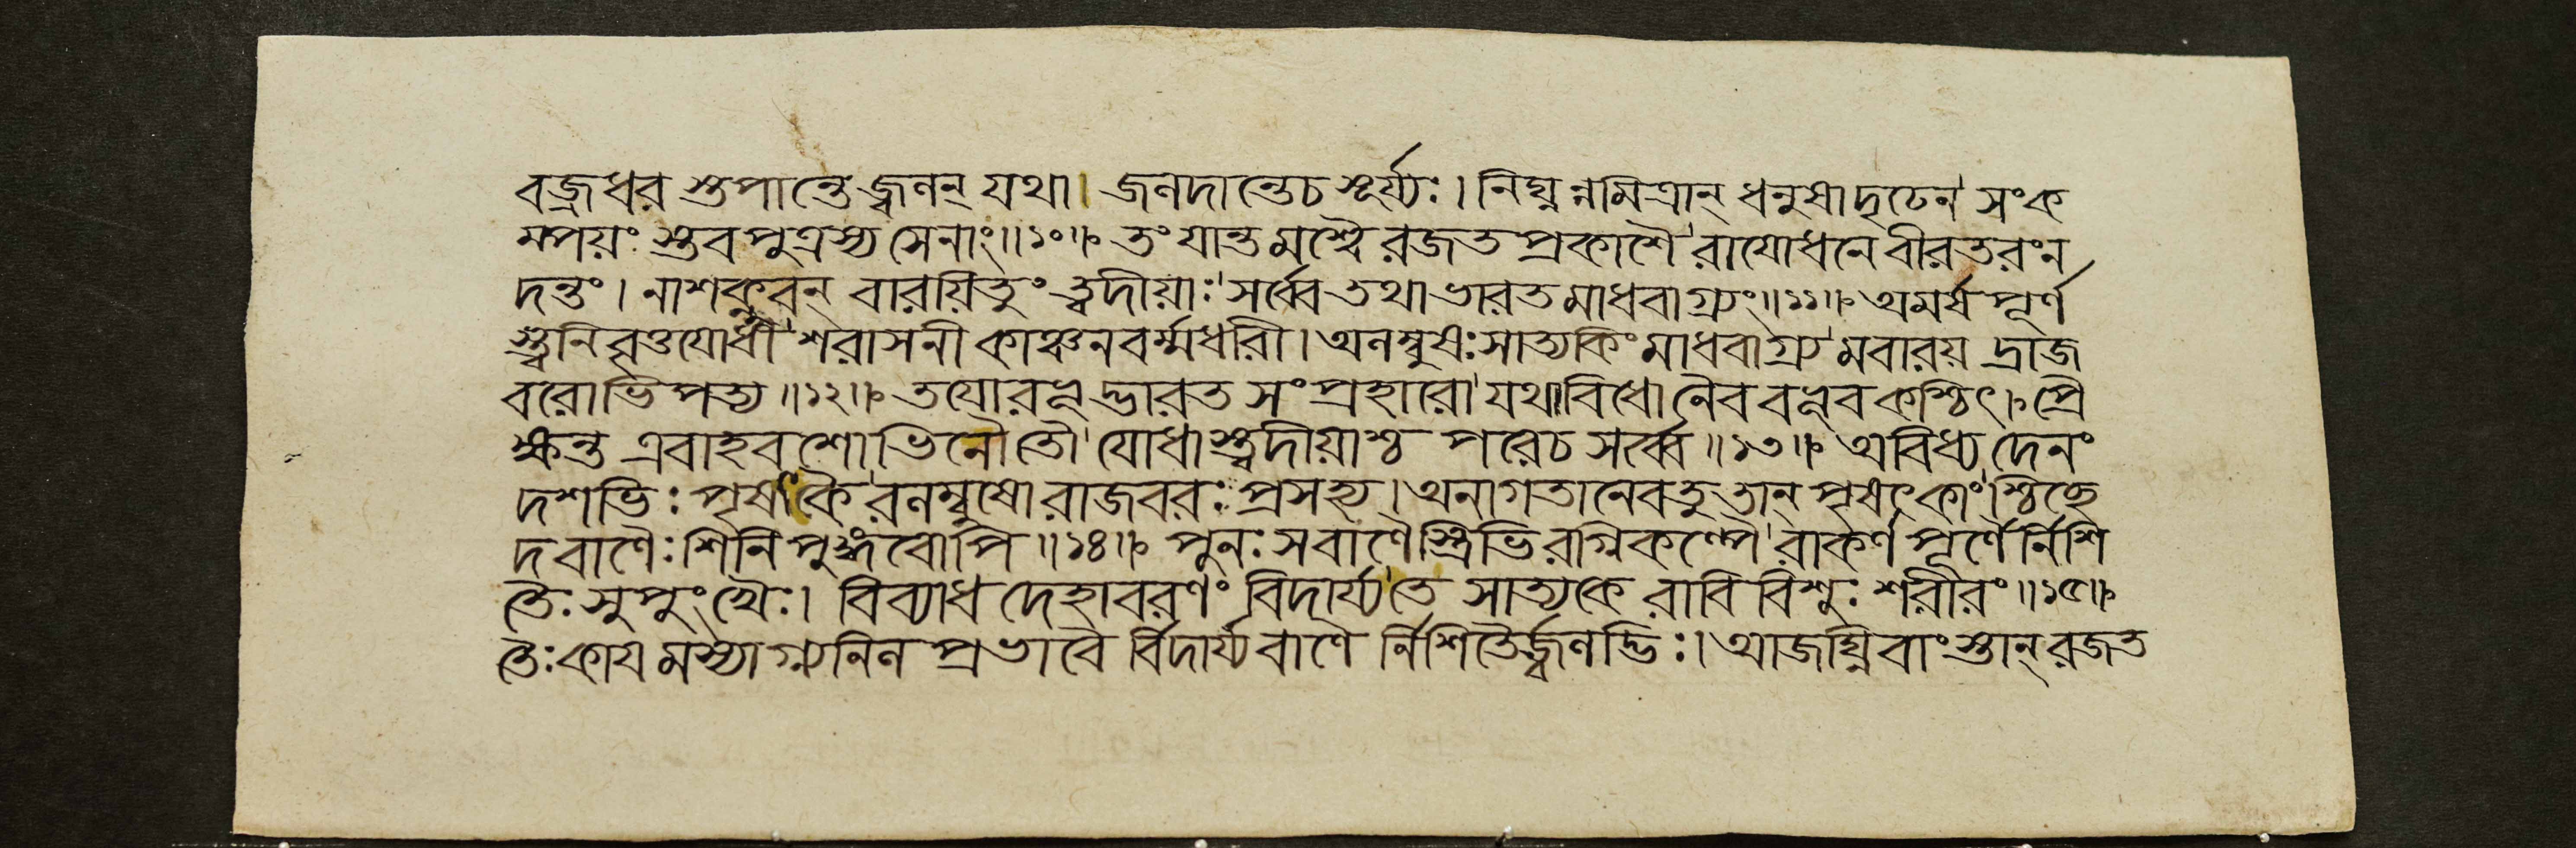 বজ্রধর স্তপান্তে জ্বলন্ যথা। জলদান্তেচ সূর্য্যঃ। নিঘ্নন্নমিত্রান্ ধনুষা দৃঢেন সংক
ম্পয়ং স্তব পুত্রস্য সেনাং॥১০॥ তং যান্তমশ্বৈ রজত প্রকাশৈ রাযোধনে বীরতরং ন
দন্তং। নাশক্নুবন্ বারয়িতুং ত্বদীয়াঃ সর্ব্বে তথা ভারত মাধবাগ্র্যং॥১১॥ অমর্ষ পূর্ণ
স্ত্বনিবৃত্তযোধী শরাসনী কাঞ্চনবর্ম্মধারী। অলম্বুষঃ সাত্যকিং মাধবাগ্র্য মবারয় দ্রাজ
বরোভিপত্য॥১২॥ তয়োরভূ দ্ভারত সংপ্রহারো যথাবিধো নৈব বভূব কশ্চিৎ। প্রৈ
ক্ষন্ত এবাহবশোভিনৌ তৌ যোধা স্ত্বদীয়াশ্চ পরেচ সর্ব্বে॥১৩॥ অবিধ্য দেনং
দশভিঃ পৃষৎকৈ রলম্বুষো রাজবরঃ প্রসহ্য। অনাগতানেব তু তান্ পৃষৎকাং শ্চিচ্ছে
দ বাণৈঃ শিনি পুঙ্গবোপি॥১৪॥ পুনঃ সবাণৈ স্ত্রিভি রগ্নিকল্পৈ রাকর্ণ পূর্ণৈ র্নিশি
তৈঃ সুপুংখৈঃ। বিব্যাধ দেহাবরণং বিদার্য্য তে সাত্যকে রাবিবিশুঃ শরীরং॥১৫॥
তৈঃ কায়মস্যাগ্ন্যনিল প্রভাবৈ র্বিদার্য্য বাণৈ র্নিশিতৈর্জ্বলদ্ভিঃ। আজঘ্নিবাং স্তান্ রজত